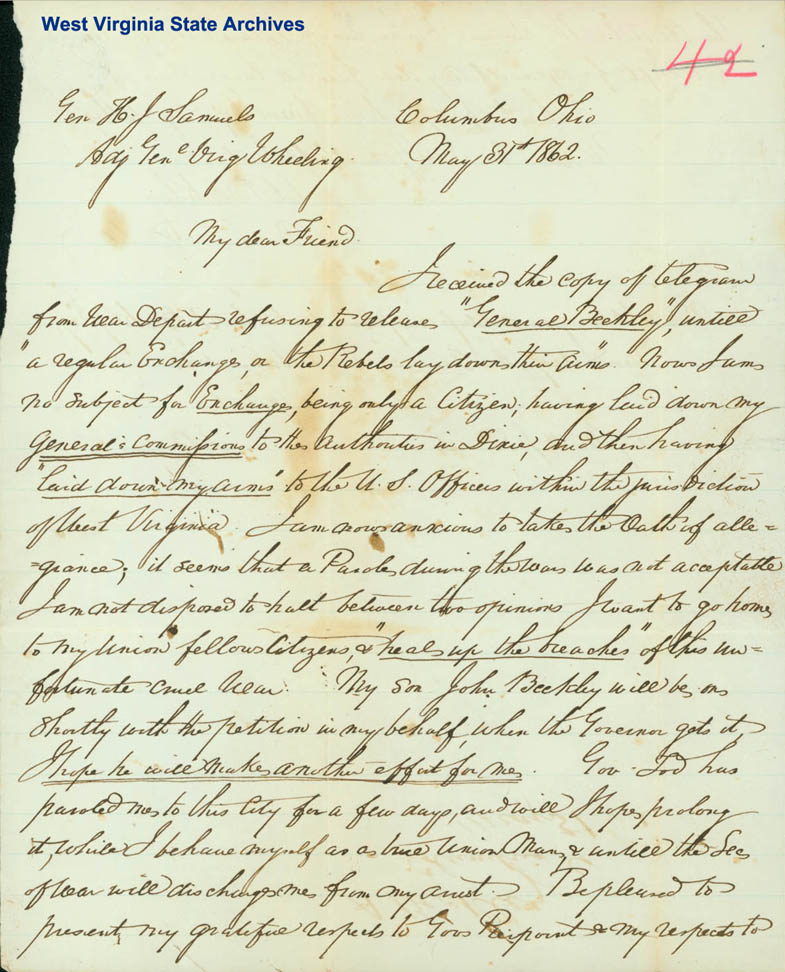 West Virginia State Archives
42
Gen H. J Samuels
Columbus Ohio
Adj Genl Virg Wheeling.
May 31st 1862.
My dear Friend
I received the copy of telegram
from War Depart refusing to release "General Beckley", untill
"a regular Exchange, or the Rebels lay down their arms". Now I am
no subject for Exchange, being only a Citizen, having laid down my
General's Commission to the authorities in Dixie, and then having
"laid down my arms" to the U. S. Officers within the jurisdiction
of West Virginia. I am now anxious to take the Oath of alle=
=giance; it seems that a Parole during the war was not acceptable
I am not disposed to halt between two opinions I want to go home,
to my Union fellow Citizens, & "heal up the breaches" of this un=
fortunate cruel War. My son John Beckley will be on
shortly with the petition in my behalf, when the Governor gets it,
I hope he will make another effort for me. Gov. Tod has
paroled me to this City for a few days, and will I hope, prolong
it, while I behave myself as a true Union Man, & untill the Sec
of War will discharge me from my arrest. Be pleased to
present, my grateful respects to Gov Peirpoint & my respects to